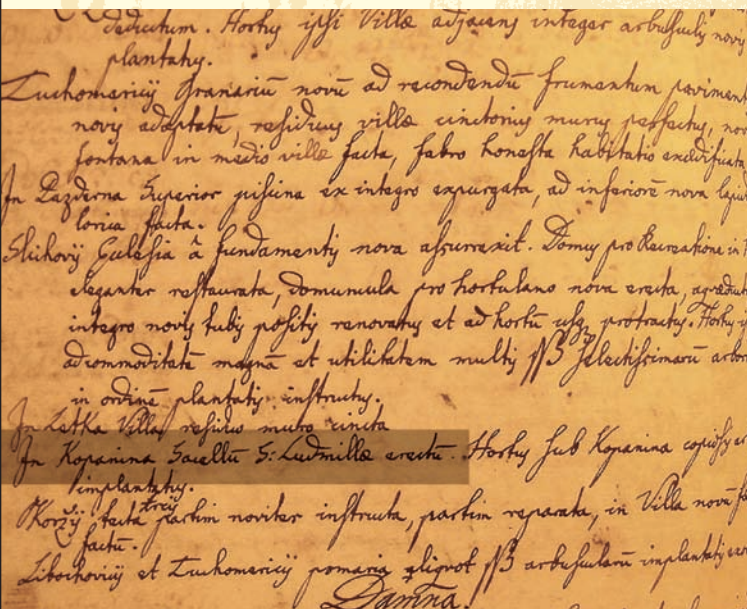 deductum. Hortus ipsi Villæ adjacens integer arbusculis novis
plantatus.
Tuchomericij Granariū novū ad recondendū frumentum paviment
novis adaptatū, residuus villæ cinctorius murus perfectus, nov
fontana in medio villæ facta, fabro honesta habitatio exædificata
In Pazderna Superior piscina ex integro expurgata, ad inferiorē nova lapid
lorica facta.
Slichovij Ecclesia à fundamentis nova assurrexit. Domus pro Recreatione in
eleganter restaurata, domuncula pro hortulano nova erecta, aquæduct
integro novis tubis positis renovatus et ad hortū usq protractus. Hortus
ad commoditatē magnā et utilitatem multis selectissimarū arbor
in ordinē plantatis instructus.
In Letka Villa residuo muro cincta
In Kopanina Sacellū S: Ludmillæ erectū. Hortus sub Kopanina copiosis ar
implantatus.
tecta partim noviter instructa, partim reparata, in Villa nova
factū.
Libochovicij et Tuchomericij pomaria aliquot arbuscularū implantatis
Damna.